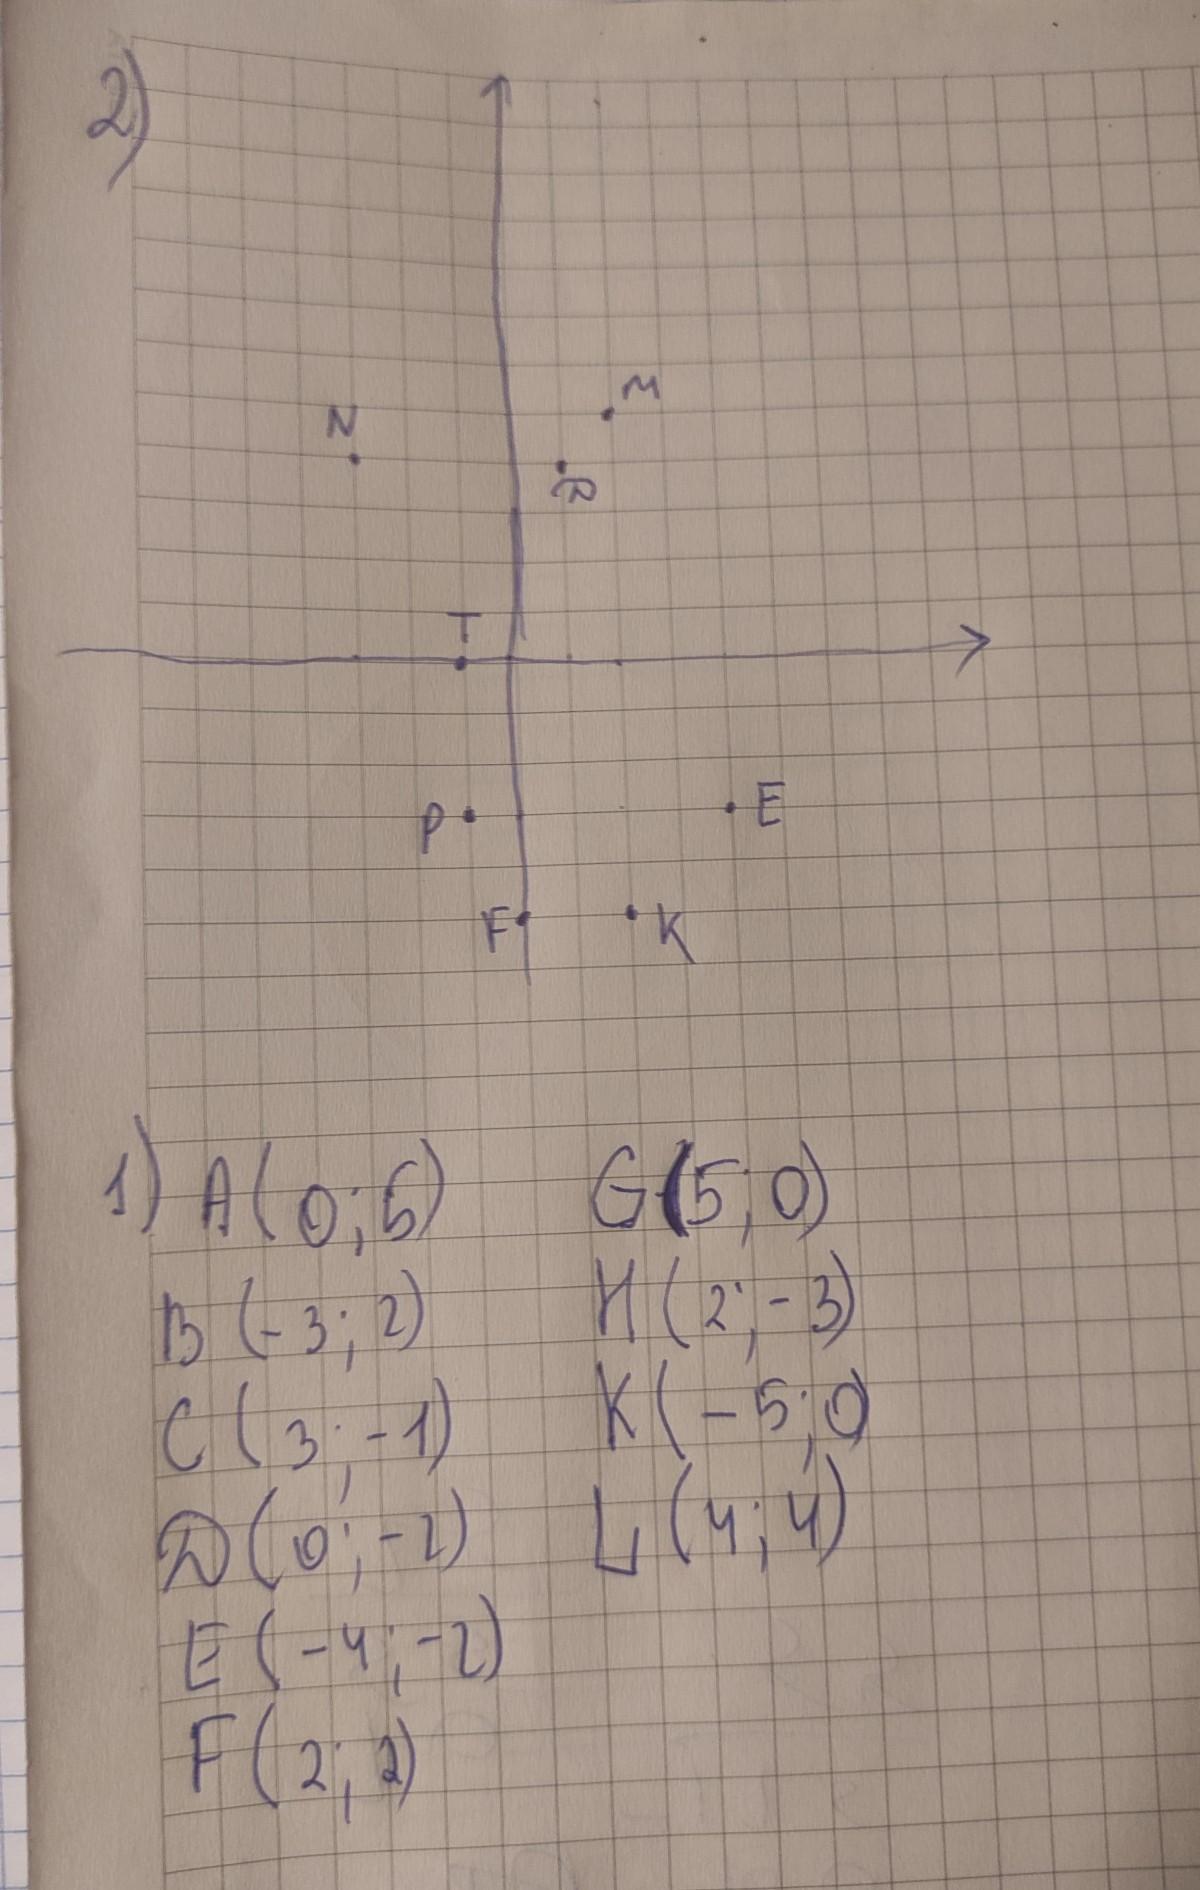 2)
M
N
D
T
P
E
F
K
1) A(0; 5) G(5; 0)
B(-3; 2) H(2; -3)
C(3; -1) K(-5; 0)
D(0; -2) L(4; 4)
E(-4; -2)
F(2; 2)